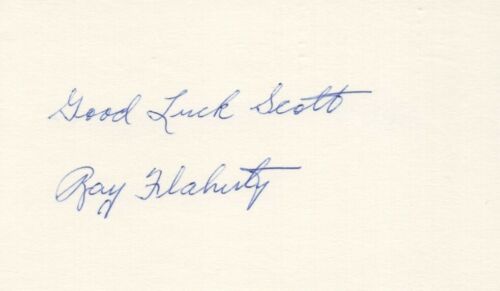 Good Luck Scott
Ray Flaherty